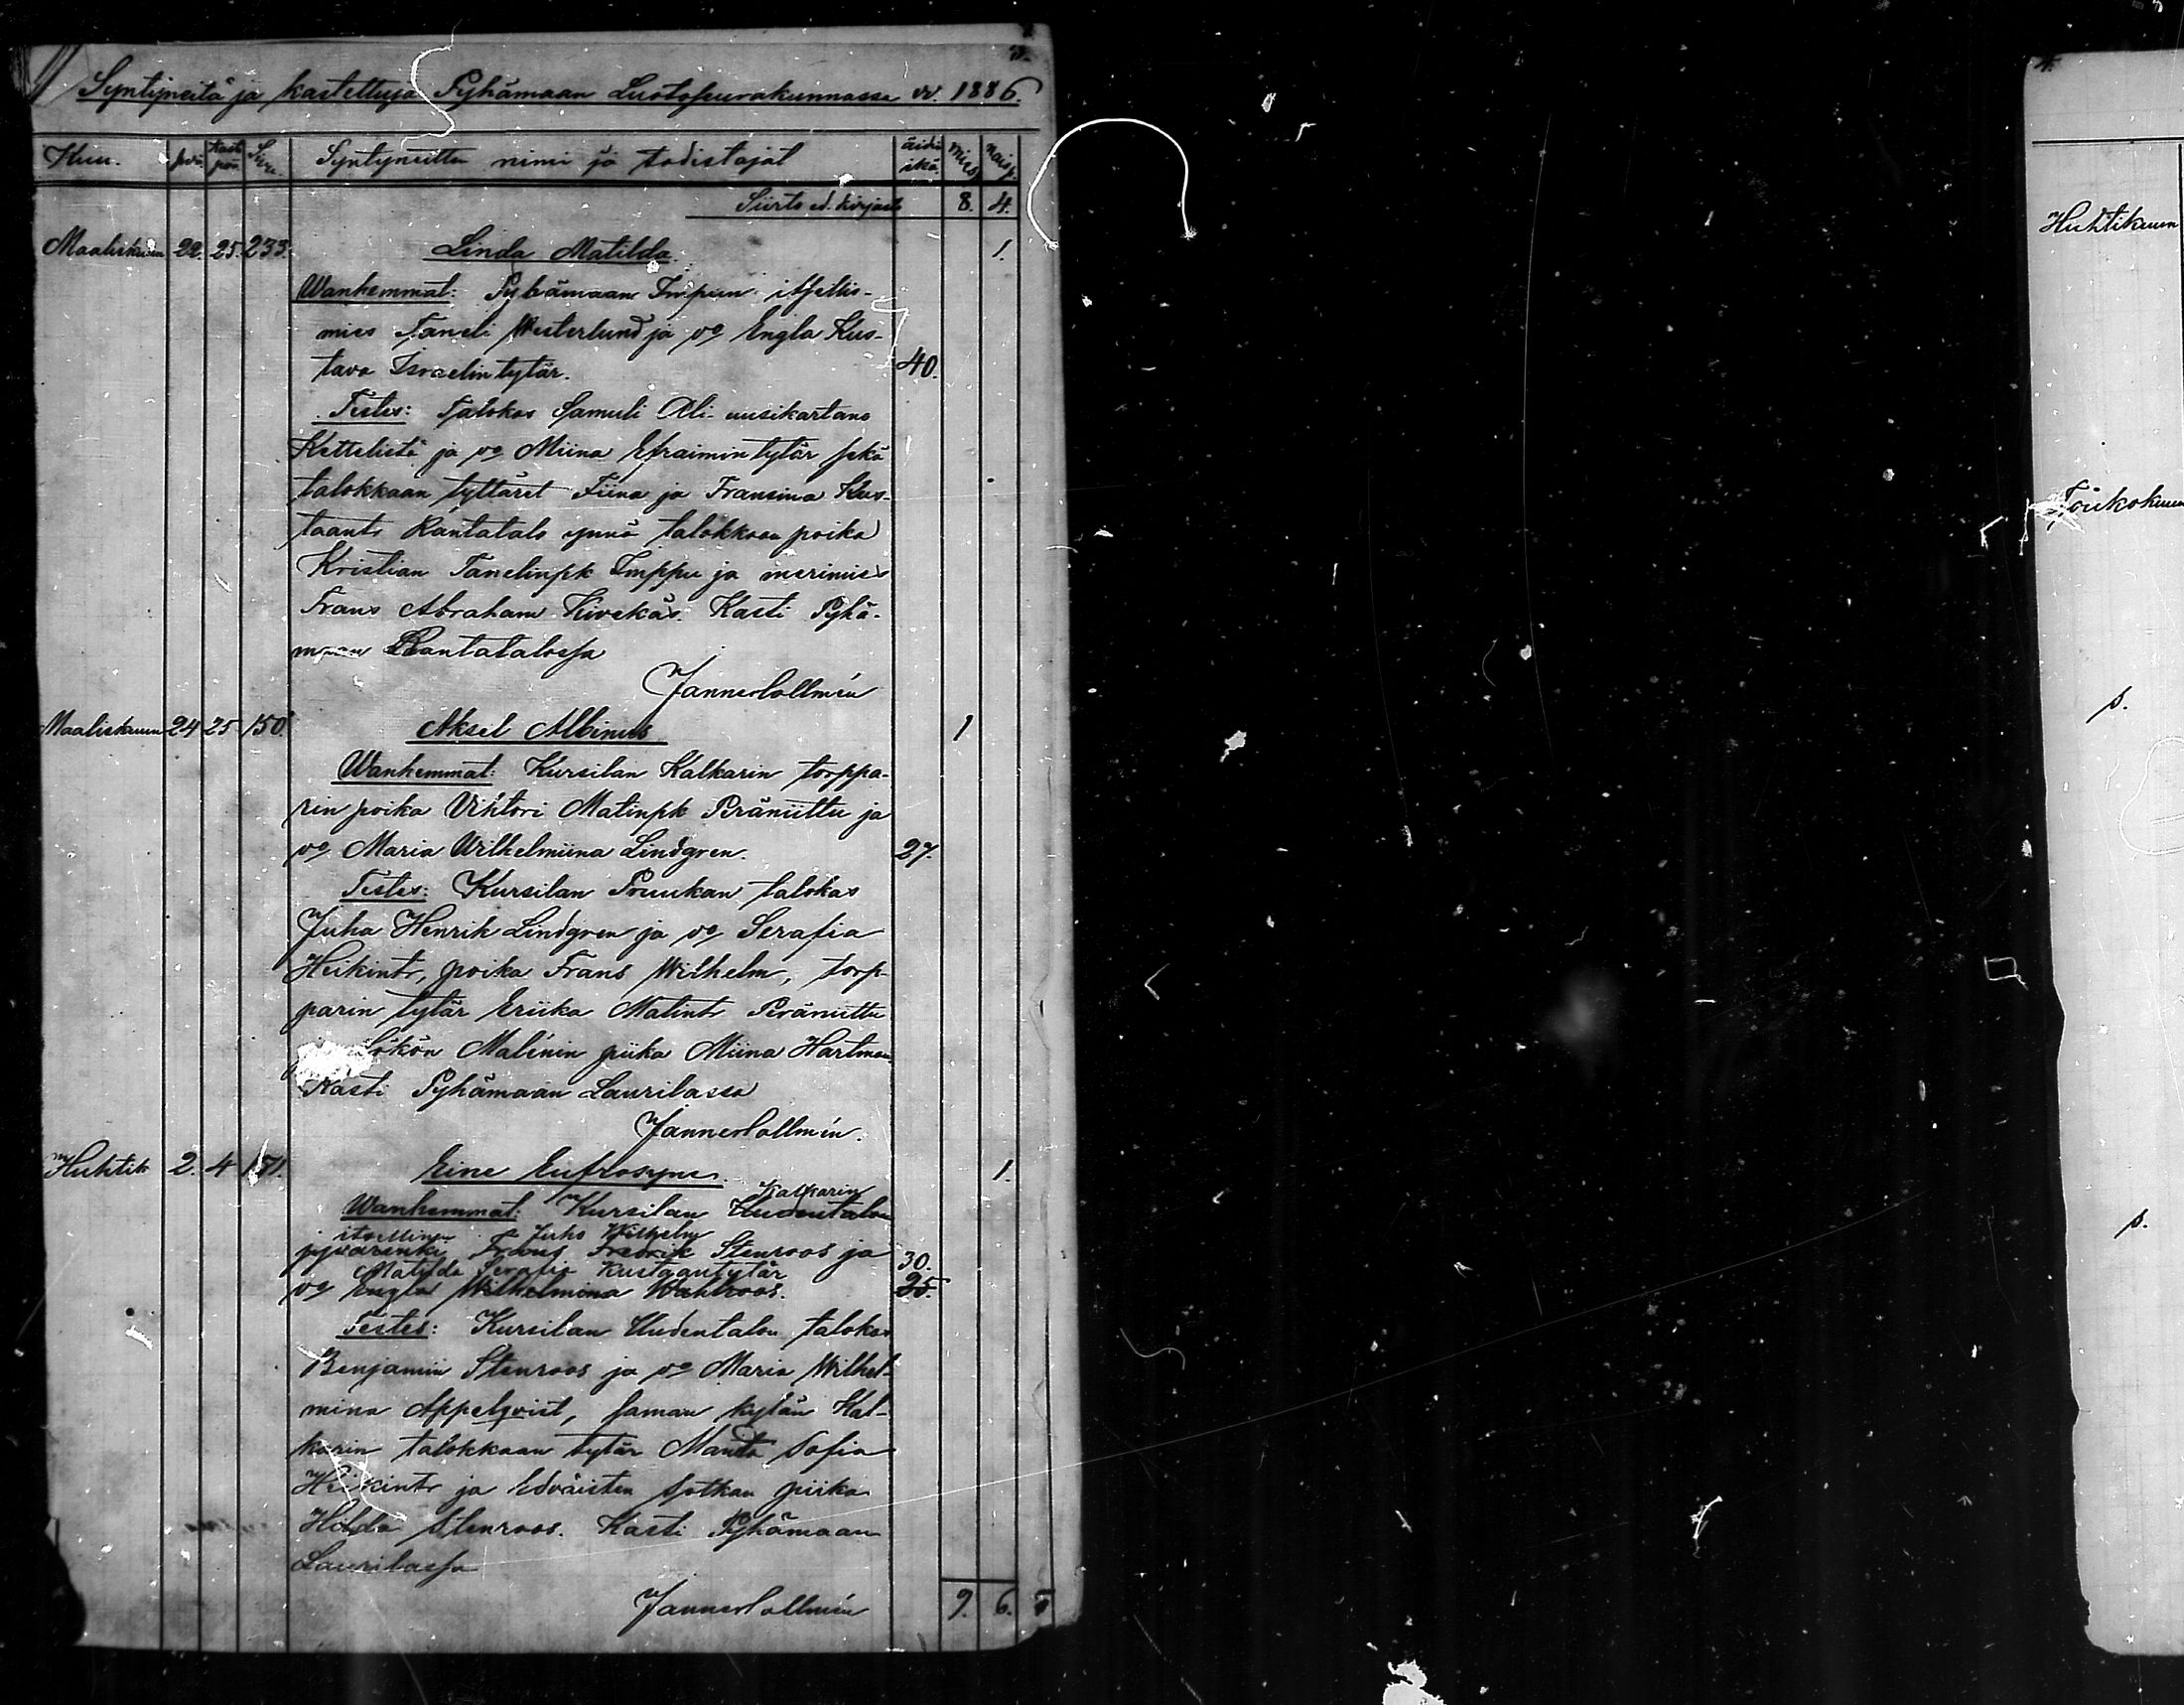 3.
Syntyneitä ja kastettuja Pyhämaan Luotoseurakunnassa vv. 1886.
Kuu. pvä. Kasti pvä Siv. Syntyneitten nimi ja todistajat äidin ikä. miesp. naisp.
Siirto ed. kirjasta 8. 4.
Maaliskuun 22. 25. 233. Linda Matilda. 1.
Wanhemmat: Pyhämaan Impun itsellis-
mies Taneli Westerlund ja vo Engla Kus-
tava Israelintytär. 40.
Testes: Talokas Samuli Ali-uusikartano
Kettelistä ja vo Miina Efraimintytär sekä
talokkaan tyttäret Fiina ja Fransina Kus-
taantr Rantatalo ynnä talokkaan poika
Kristian Tanelinpk Imppu ja merimies
Frans Abraham Kivekäs. Kasti Pyhä-
maan Rantatalossa
Janne Collmén
Maaliskuun 24 25 150. Aksel Albinus 1
Wanhemmat: Kursilan Kalkarin torppa-
rin poika Vihtori Matinpk Peräniittu ja
vo Maria Wilhelmiina Lindgren. 27.
Testes: Kursilan Pruukan talokas
Juha Henrik Lindgren ja vo Serafia
Heikintr, poika Frans Wilhelm, torp-
parin tytär Eriika Matintr Peräniittu
Lökön Malénin piika Miina Hartman
Kasti Pyhämaan Laurilassa
Janne Collmén.
Huhtik 2. 4 151. Eine Eufrosyne. 1.
Kalkarin
Wanhemmat: Kursilan Uudentalon
itsellinen Juho Wilhelm
pyvärenki Frans Fredrik Stenroos ja 30.
Matilda Serafia Kustaantytär
vo Engla Wilhelmina Wahlroos. 25.
Testes: Kursilan Uudentalon talokas
Benjamin Stenroos ja vo Maria Wilhel-
mina Appelqvist, saman kylän Kal-
karin talokkaan tytär Manta Sofia
Heikintr ja Edväisten Sotkan piika
Hilda Stenroos. Kasti Pyhämaan
Laurilassa
Janne Collmén
9. 6. 5
4.
Huhtikuun
Toukokuun
s.
s.